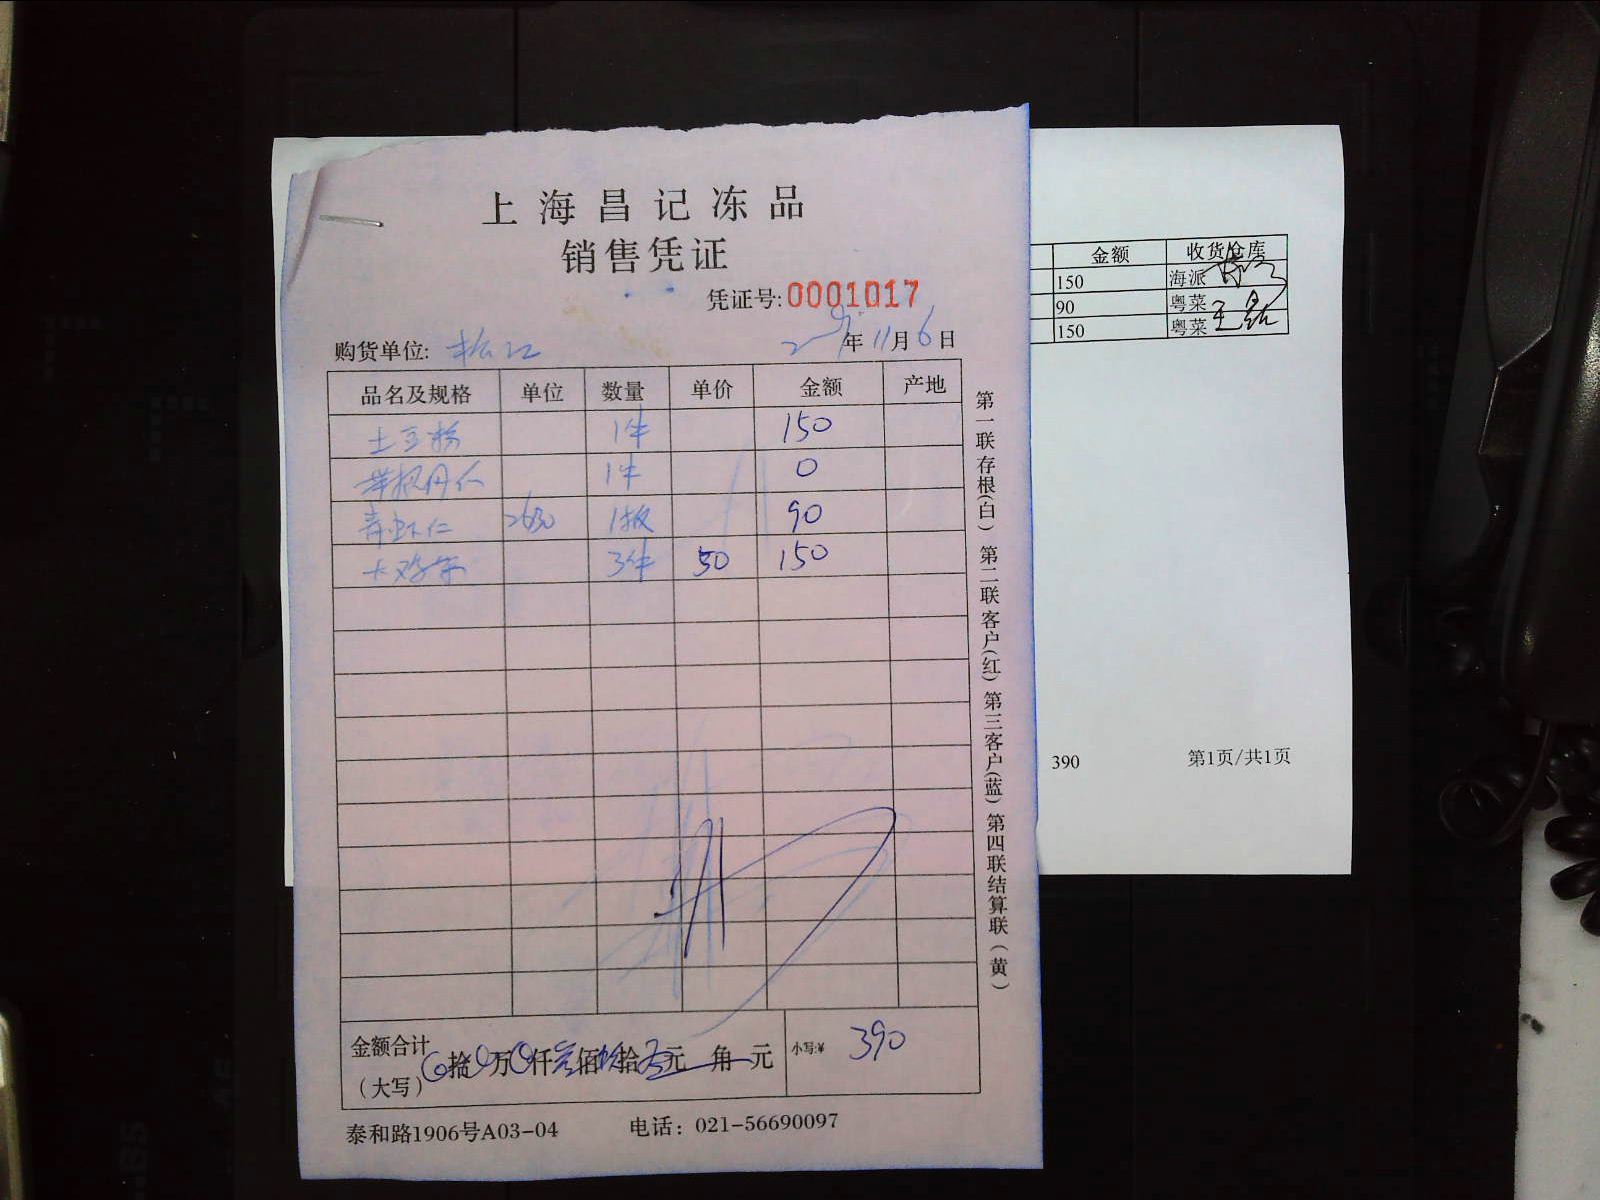 上海昌记冻品
销售凭证
凭证号:0001017
购货单位: 松江 年11月6日
品名及规格 单位 数量 单价 金额 产地
土豆粉 1件 150
1件 0
青虾仁 2630 1板 90
大鸡 3件 50 150
金额合计(大写) 拾 万 仟叁佰玖拾 元 角 元 小写:¥ 390
泰和路1906号A03-04 电话: 021-56690097
第一联存根(白) 第二联客户(红) 第三客户(蓝) 第四联结算联(黄)
金额 收货仓库
150 海派
90 粤菜
150 粤菜
390 第1页/共1页